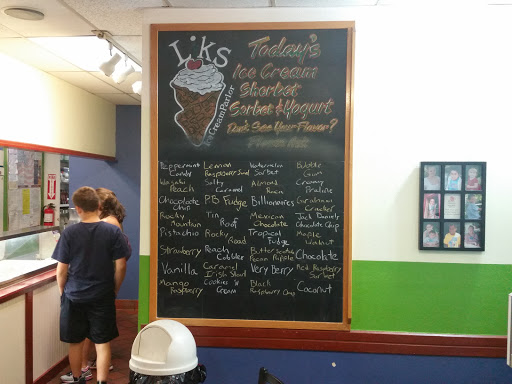 Liks
Ice Cream Parlor
Today's
Ice Cream
Sherbet
Sorbet & Yogurt
Don't See Your Flavor?
Please Ask
Peppermint Candy
Lemon Raspberry Swirl
Watermelon Sorbet
Bubble Gum
Peach
Salty Caramel
Almond
Creamy Praline
Chocolate Chip
P.B Fudge
Billionaires
Graham Cracker
Rocky Mountain
Tin Roof
Mexican Chocolate
Jack Daniels Chocolate Chip
Pistachio
Rocky Road
Tropical Fudge
Maple Walnut
Strawberry
Peach Cobbler
Butterscotch Pecan Ripple
Chocolate
Vanilla
Caramel Irish
Very Berry
Red Raspberry Sorbet
Mango Raspberry
Cookies 'N Cream
Black Raspberry Chip
Coconut